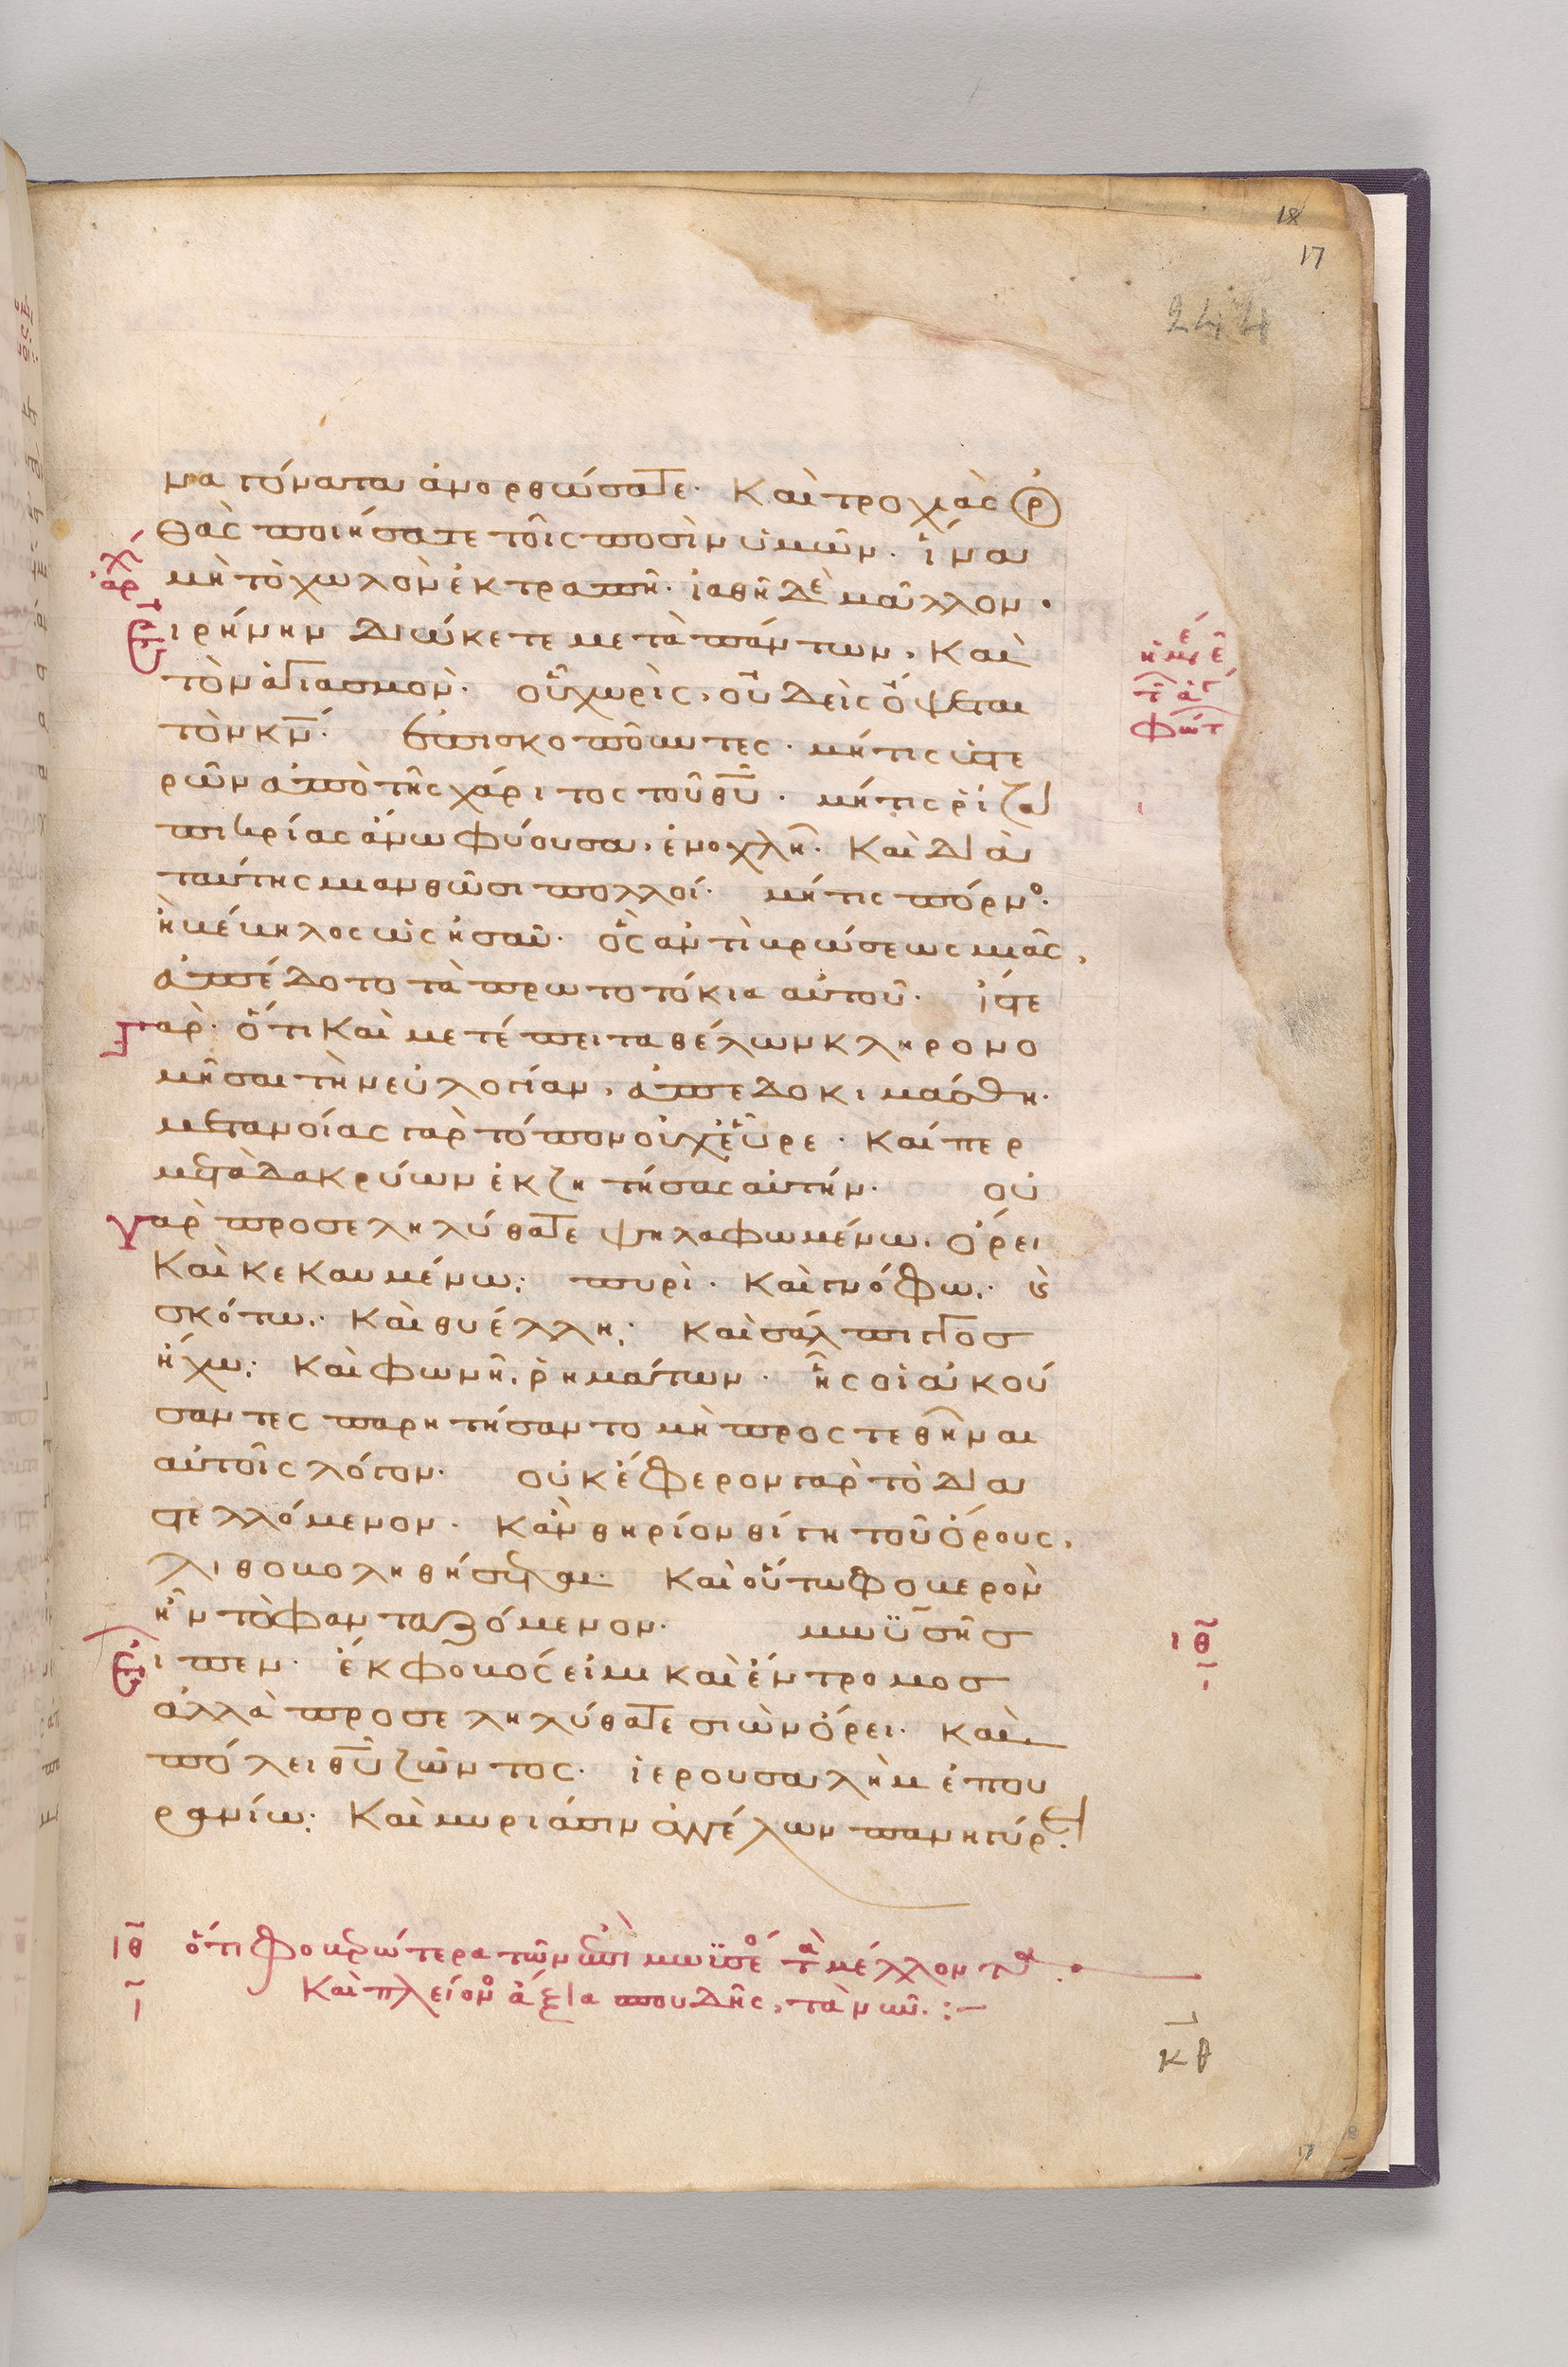 18
17
244
να γόνατα ἀνορθώσατε· Καὶ τροχιὰς ὀρ
θὰς ποιήσατε τοῖς ποσὶν ὑμῶν· ἵνα
μὴ τὸ χωλὸν ἐκτραπῆ· ἰαθῆ δὲ μᾶλλον·
Εἰρήνην διώκετε μετὰ πάντων, Καὶ
τὸν ἁγιασμὸν· οὗ χωρὶς, οὐδεὶς ὄψεται
τὸν κ̅ν̅· ἐπισκοποῦντες· μή τις ὑστε
ρῶν ἀπὸ τῆς χάριτος τοῦ θ̅υ̅· μή τις ρίζα
πικρίας ἄνω φύουσα, ἐνοχλῆ· Καὶ διὰ
ταύτης μιανθῶσι πολλοί· μή τις πόρνο
ἢ βέβηλος ὡς ἡσαῦ· ὃς ἀντὶ βρώσεως μιᾶς,
ἀπέδοτο τὰ πρωτοτόκια αὐτοῦ· ἴστε
Γαρ· ὅτι Καὶ μετέπειτα θέλων κληρονο
μῆσαι τὴν εὐλογίαν, ἀπεδοκιμάσθη·
μετανοίας γὰρ τόπον οὐχ εὗρε· Καίπερ
μετὰ δακρύων ἐκζητήσας αὐτήν· οὐ
Γὰρ προσεληλύθατε ψηλαφωμένω, ὄρει
Καὶ κεκαυμένω· πυρὶ· Καὶ γνόφω· ϗ̀
σκότω· Καὶ θυέλλη· Καὶ σάλπιγγος
ἤχω· Καὶ φωνῆ, ῥημάτων· ἧς οἱ ἀκού
σαντες παρητήσαντο μὴ προστεθῆναι
αὐτοῖς λόγον· οὐκ ἔφερον γὰρ τὸ δια
στελλόμενον· Κἂν θηρίον θίγη τοῦ ὄρους,
λιθοβοληθήσεται· Καὶ οὕτω φοβερὸν
ἦν τὸ φανταζόμενον· μωϋσῆς
Εἶπεν· ἔκφοβός εἰμι καὶ ἔντρομος
ἀλλὰ προσεληλύθατε σιὼν ὄρει· Καὶ
πόλει θ̅υ̅ ζῶντος· ἱερουσαλὴμ ἐπου
ρανίω· Καὶ μυριάσιν ἀγγέλων πανηγύρει·
ι̅θ̅
ι̅θ̅ ὅτι φοβερώτερα τῶν ἐπὶ μωϊσέο τὰ μέλλοντα·
Καὶ πλείονο ἄξια σπουδῆς, τὰ νῦν·:–
κθ